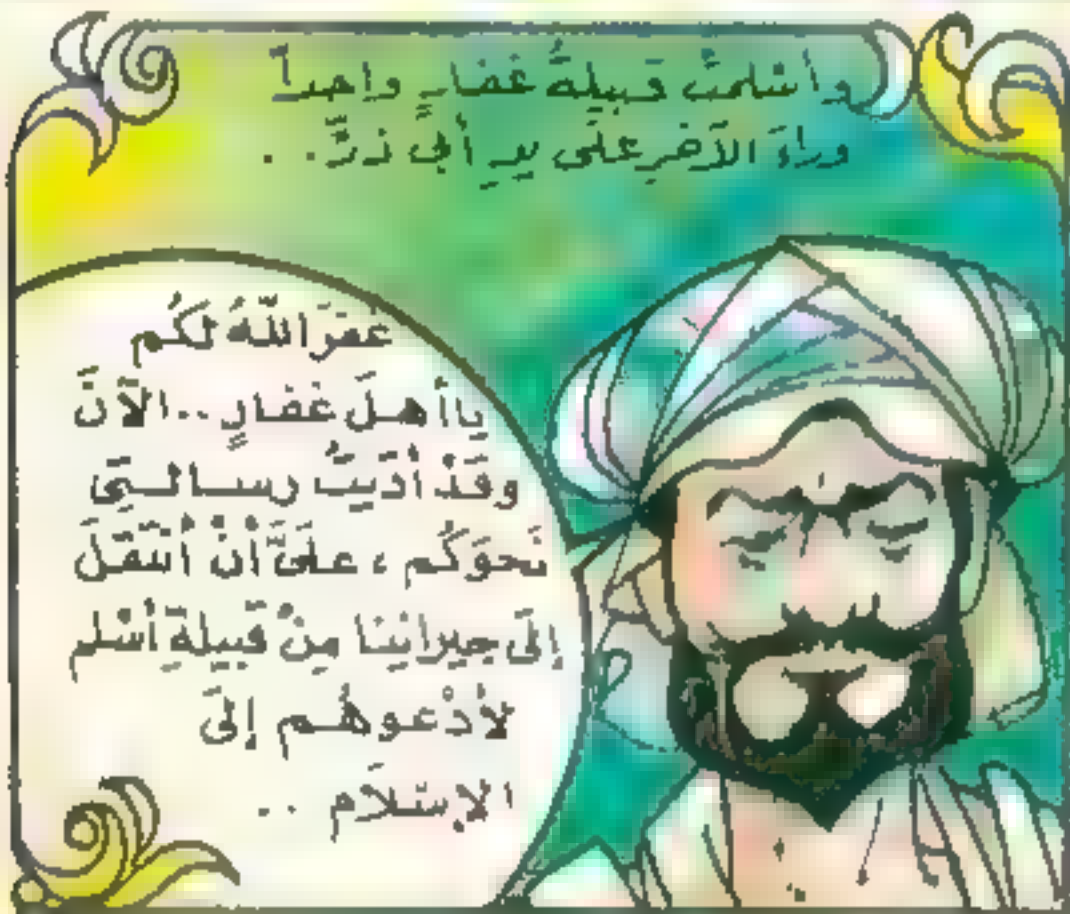 وأسْلمتْ قَبيلةُ غفَارٍ واحِداً
وراءَ الآخرِ علَى يدِ أبي ذرٍّ . .
غَفَرَ اللّهُ لَكُم
يا أهلَ غفارٍ .. الآنَ
وقَدْ أدّيتُ رسالتِي
نَحوَكُم ، علَيَّ أنْ أنْتَقلَ
إلَى جيرانِنا مِنْ قبيلةِ أسْلم
لأدْعوهُم إلَى
الإسْلَام ..